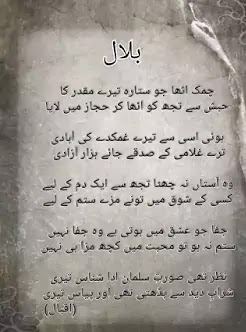 بلال
چمک اٹھا جو ستارہ تیرے مقدر کا
حبش سے تجھ کو اٹھا کر حجاز میں لایا
ہوئی اسی سے تیرے غمکدے کی آبادی
ترے غلامی کے صدقے جائے ہزار آزادی
وہ آستاں نہ چھٹا تجھ سے ایک دم کے لیے
کسی کے شوق میں تونے مزے ستم کے لیے
جفا جو عشق میں ہوتی ہے وہ جفا نہیں
ستم نہ ہو تو محبت میں کچھ مزا ہی نہیں
نظر تھی صورت سلمان ادا شناس تیری
شراب دید سے بڈھتی تھی اور پیاس تیری
(اقبال)